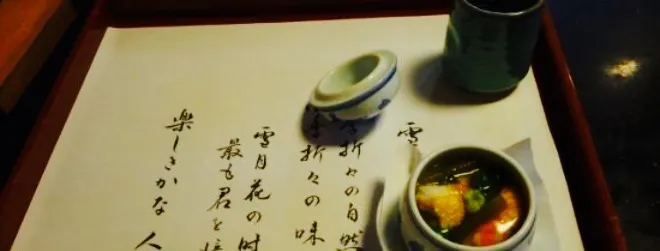 雪
折々の自然
季折々の味
雪月花の時
最も君を
楽しきかな 人